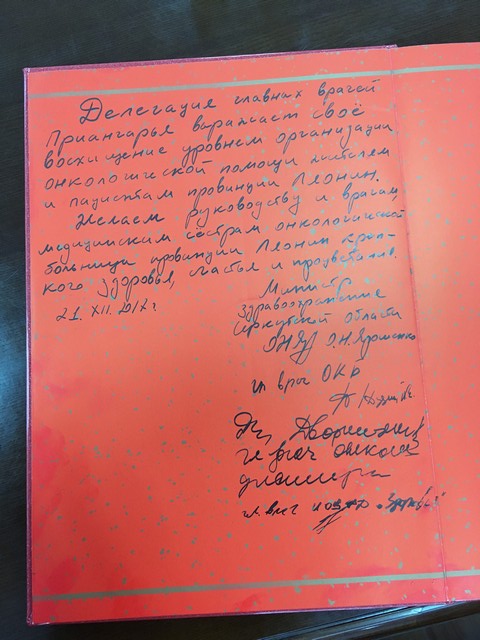 Делегация главных врачей
Приангарья выражает своё
восхищение уровнем организации
онкологической помощи жителям
и пациентам провинции Ляонин.
Желаем руководству и врачам,
медицинским сёстрам онкологической
больницы провинции Ляонин креп-
кого здоровья, счастья и процветания.
21. XII. 2017г.
Министр
здравоохранения
Иркутской области
О.Н. Ярошенко
гл врач ОКБ
гл врач онколог
диспансера
гл. врач